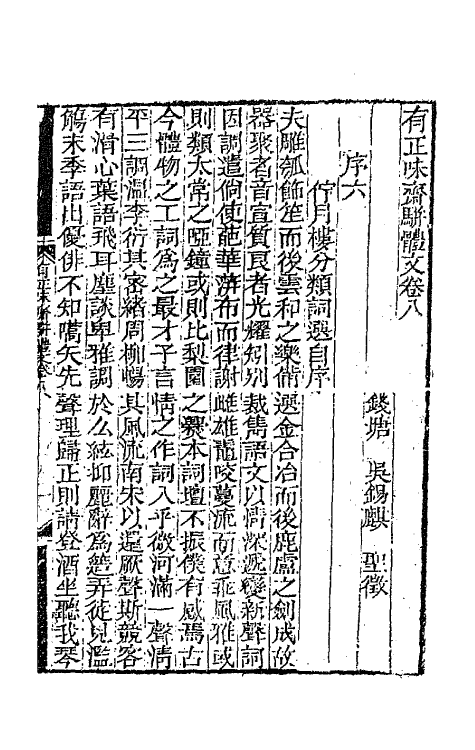 有正味齋駢體文卷八
錢塘　吳錫麒　聖徵
序六
佇月樓分類詞選自序
夫雕瓠飾笙而後雲和之樂備選金合冶而後鹿盧之劍成故
器聚者音宣質良者光耀矧別裁雋語文以情深遞變新聲詞
因調遣倘使葩華漭布而律謝雌雄鼃咬蔓流而意乖風雅或
則類太常之啞鐘或則比梨園之爨本詞壇不振僕有感焉古
今體物之工詞為之最才子言情之作詞入乎微河滿一聲清
平三調溫李衍其密緒周柳暢其風流南宋以還厥聲斯競客
有滑心葉語飛耳塵談卑雅調於么絃抑麗辭為弄徒見濫
觴末季語出優俳不知嚆矢先聲理歸正則請登酒坐聽我琴